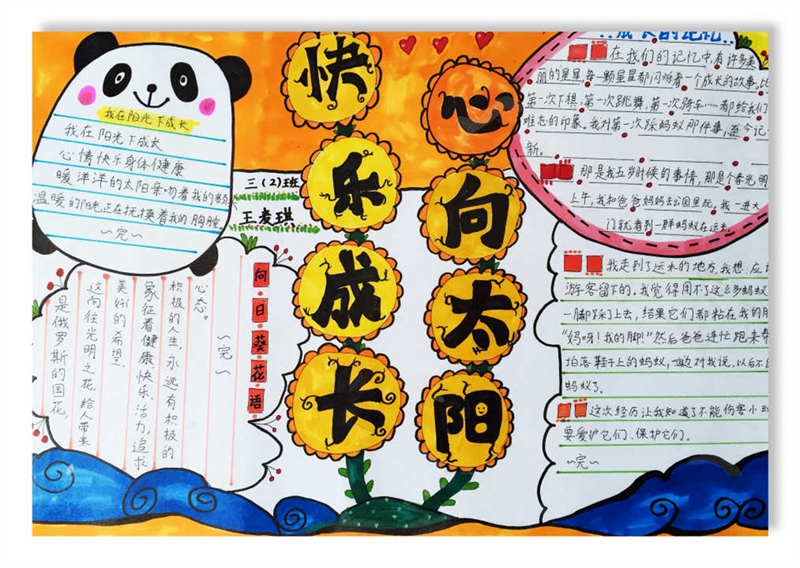 快乐成长
心向太阳
三(2)班
王麦琪
我在阳光下成长
我在阳光下成长
心情快乐身体健康
暖洋洋的太阳亲吻着我的
温暖的阳光正在抚摸着我的胸膛。
~完~
向日葵花语
是俄罗斯的国花,
这向往光明之花,给人带来
美好的希望。
象征着健康、快乐、活力、追求
积极的人生,永远有积极的
心态。
~完~
成长的记忆
在我们的记忆中,有许多美
丽的星星,每一颗星星都闪烁着一个成长的故事,比
第一次下棋、第一次跳舞、第一次骑车……都给我们
难忘的印象。我对第一次踩蚂蚁那件事,至今记
新。
那是我五岁时候的事情,那是个春光明
上午,我和爸爸妈妈去公园里玩。我一进大
门就看到一群蚂蚁在运米。
我走到了运米的地方,我想:应
游客留下的。我觉得用不了这么多蚂蚁
一脚踩了上去,结果它们都粘在我的脚
“妈呀!我的脚!”然后爸爸连忙跑来帮
拍落鞋子上的蚂蚁,一边对我说,以后不
蚂蚁了。
这次经历让我知道了不能伤害小
要爱护它们、保护它们。
~完~